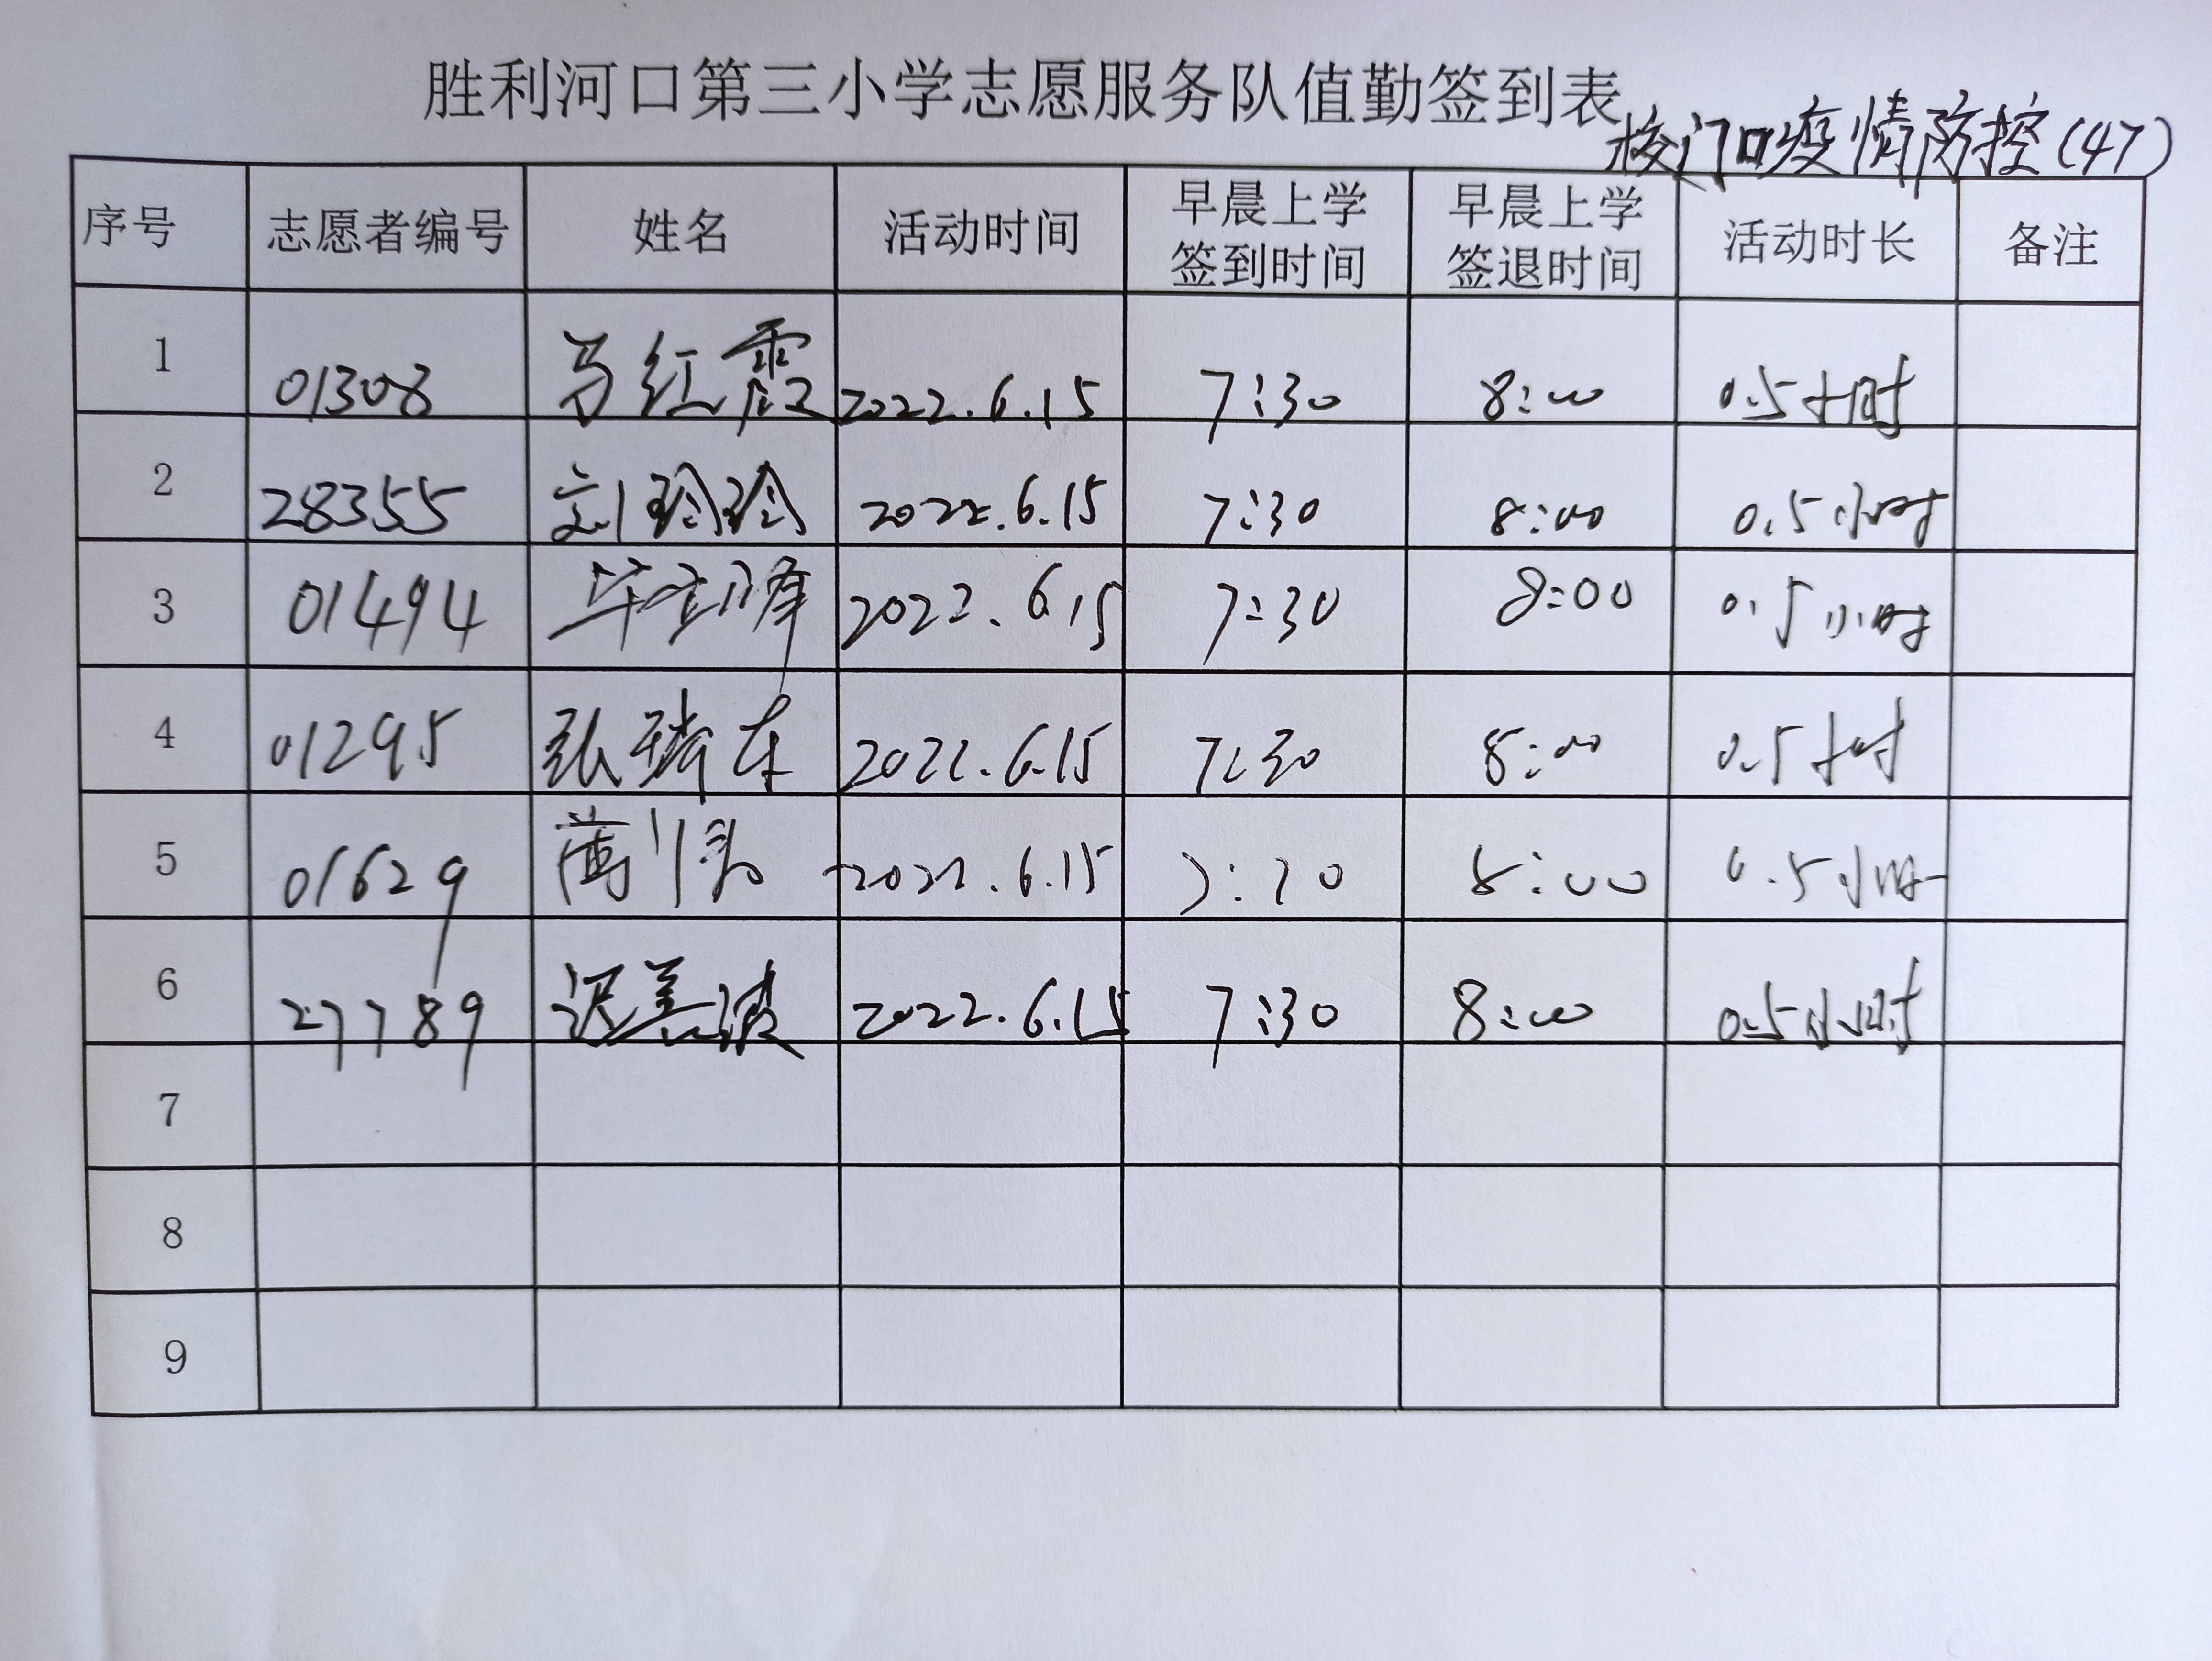 胜利河口第三小学志愿服务队值勤签到表
校门口疫情防控(47)
序号 志愿者编号 姓名 活动时间 早晨上学签到时间 早晨上学签退时间 活动时长 备注
1 01308 马红霞 2022.6.15 7:30 8:00 0.5小时
2 28355 刘玲玲 2022.6.15 7:30 8:00 0.5小时
3 01494 毕立峰 2022.6.15 7:30 8:00 0.5小时
4 01295 张瑞东 2022.6.15 7:30 8:00 0.5小时
5 01629 2022.6.15 7:30 8:00 0.5小时
6 27789 迟善波 2022.6.15 7:30 8:00 0.5小时
7
8
9